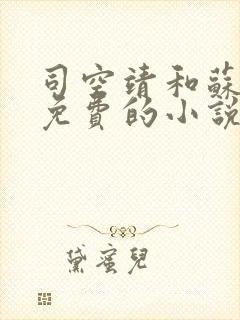 司空靖和蘇
免費的小說
黛蜜兒